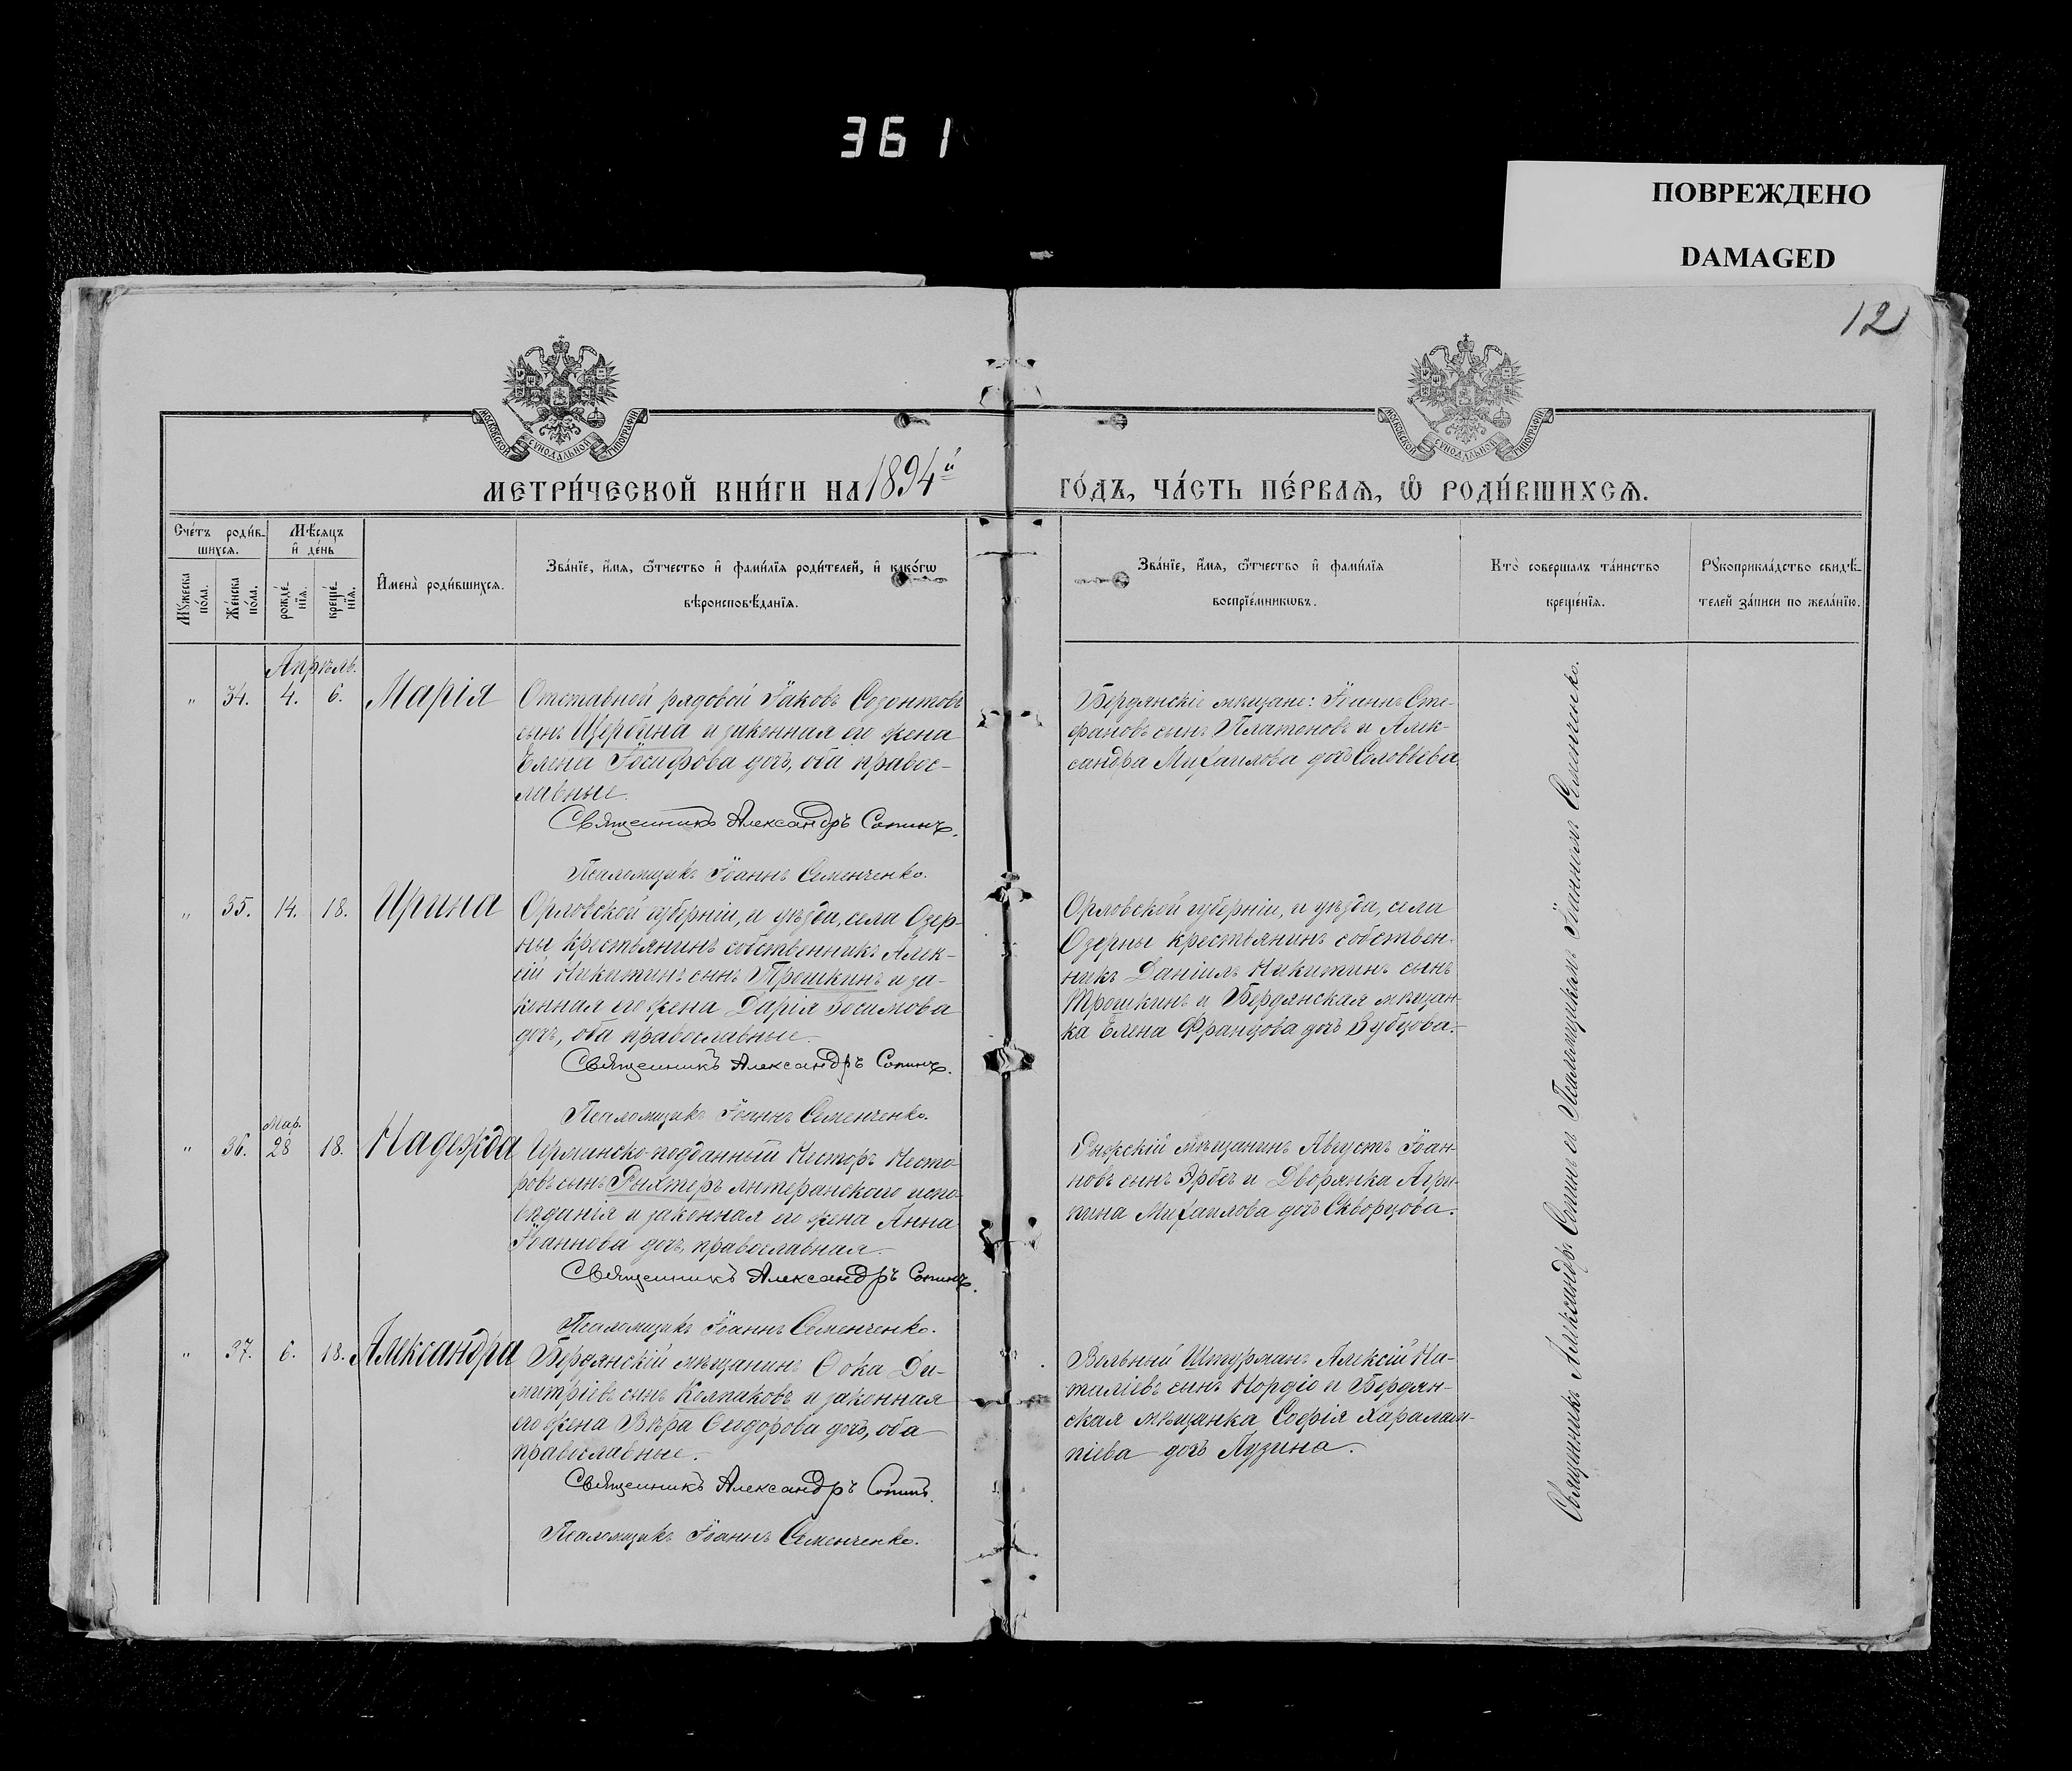 361
ПОВРЕЖДЕНО
DAMAGED
12
МОСКОВСКОЙ СУНОДАЛЬНОЙ ТИПОГРАФІИ
МОСКОВСКОЙ СУНОДАЛЬНОЙ ТИПОГРАФІИ
МЕТРИ́ЧЕСКОЙ КНИ́ГИ НА 1894й
ГО́ДЪ, ЧА́СТЬ ПЕ́РВАѦ, Ѡ҆ РОДИ́ВШИХСѦ.
Сче́тъ роди́в-
шихсѧ.
Мѣ́сѧцъ
и҆ де́нь
Мꙋжеска
по́ла.
Же́нска
по́ла.
рожде́-
нїѧ.
креще́-
нїѧ.
И҆мена̀ роди́вшихсѧ.
Зва́нїе, и҆́мѧ, ѻ҆́тчество и҆ фами́лїѧ роди́телей, и҆ како́гѡ
вѣроисповѣ́данїѧ.
Зва́нїе, и҆́мѧ, ѻ҆́тчество и҆ фами́лїѧ
воспрїе́мникѡвъ.
Кто̀ соверша́лъ та́инство
креще́нїѧ.
Рꙋкоприкла́дство свидѣ́-
телей за́писи по жела́нїю.
Апрѣль.
" 34. 4. 6. Марія
Отставной рядовой Іаковъ Созонтовъ
сынъ Щербина и законная его жена
Елена Іосифова дочь, оба правос-
лавные.
Священникъ Александръ Сопинъ.
Псаломщикъ Іоаннъ Семенченко.
Бердянскіе мѣщане: Іоаннъ Сте-
фановъ сынъ Платоновъ и Алек-
сандра Михаилова дочь Соловьева
" 35. 14. 18. Ирина
Орловской губерніи, и уѣзда, села Озер-
ны крестьянинъ собственникъ Алек-
сій Никитинъ сынъ Трошкинъ и за-
конная его жена Дарія
дочь, оба православные.
Священникъ Александръ Сопинъ.
Псаломщикъ Іоаннъ Семенченко.
Орловской губерніи, и уѣзда, села
Озерны крестьянинъ собствен-
никъ Даніилъ Никитинъ сынъ
Трошкинъ и Бердянская мѣщан-
ка Елена Францова дочь Зубцова.
Мар.
" 36. 28 18. Надежда
Германско-подданный Несторъ Несто-
ровъ сынъ Рыхтеръ лютеранского испо-
веданія и законная его жена Анна
Іоаннова дочь, православная.
Священникъ Александръ Сопинъ.
Псаломщикъ Іоаннъ Семенченко.
мѣщанинъ Августъ Іоан-
новъ сынъ Эрбсъ и Дворянка Агри-
пина Михаилова дочь Скворцова.
" 37. 6. 18. Александра
Бердянскій мѣщанинъ Ѳока Ди-
митріевъ сынъ Колпаковъ и законная
его жена Вѣра Ѳеодорова дочь, оба
православные.
Священникъ Александръ Сопинъ.
Псаломщикъ Іоаннъ Семенченко.
Вольный Штурманъ Алексій На-
таліевъ сынъ Нордіо и Бердян-
ская мѣщанка Софія Харалам-
піева дочь Пузина.
Священникъ Александръ Сопинъ съ Псаломщикомъ Іоанномъ Семенченко.